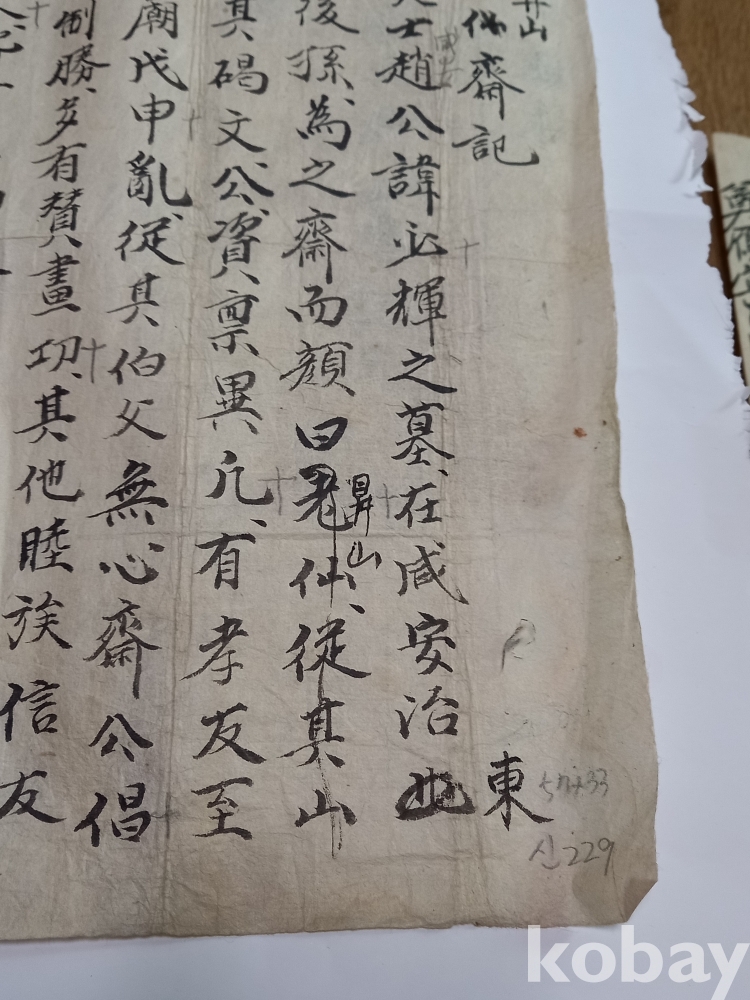 山
仙齋記
士趙公諱必輝之墓、在咸安治
東
後孫、為之齋而顔曰老仙、從其山
昇山
其碣文、公、資稟、異凡、有孝友至
廟戊申亂、從其伯父無心齋公倡
倒勝、多有贊畫功、其他睦族信友
신229
kobay